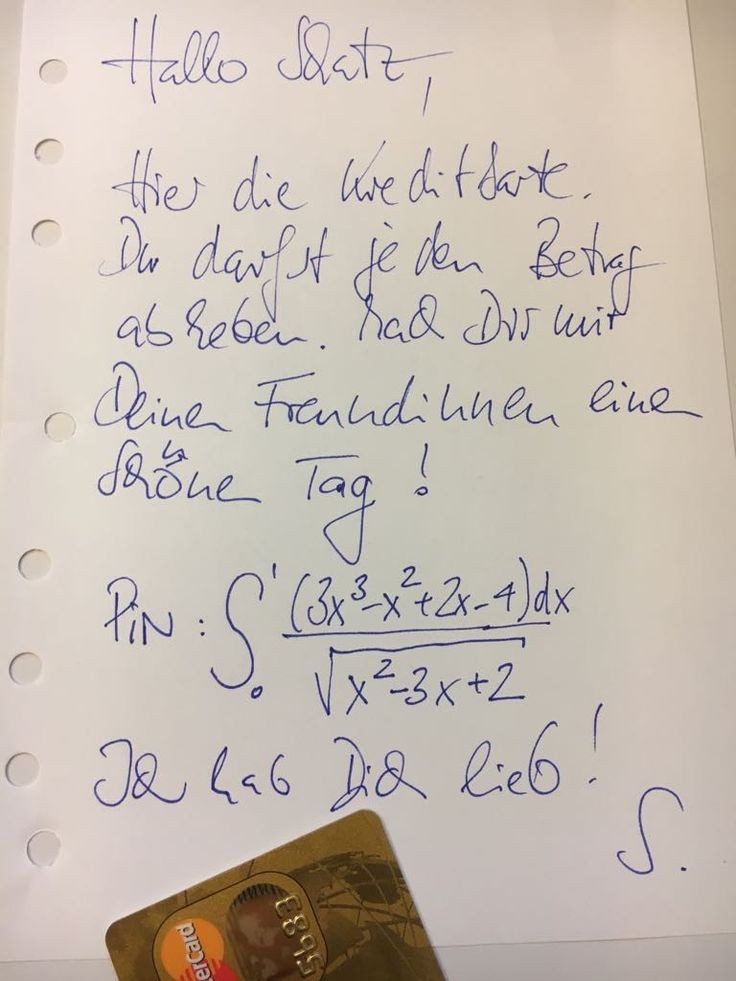 Hallo Schatz,
Hier die Kreditkarte.
Du darfst jeden Betrag
abheben. Mach Dir mit
Deinen Freundinnen einen
schönen Tag!
PIN: ∫₀¹ (3x³-x²+2x-4)dx / √(x²-3x+2)
Ich hab Dich lieb!
S.
5683
MasterCard